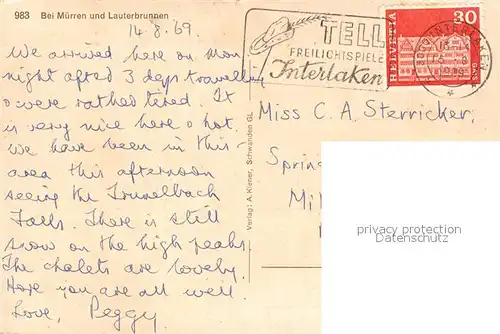 983 Bei Mürren und Lauterbrunnen
14.8.69
We arrived here on Mon
night after 3 days travelling
& were rather tired. It
is very nice here & hot.
We have been in this
area this afternoon
seeing the Trummelbach
Falls. There is still
snow on the high peaks.
The chalets are lovely.
Hope you are all well.
Love, Peggy
Verlag: A. Kiener, Schwanden GL
TELL
FREILICHTSPIELE
Interlaken
HELVETIA
30
INTERLAKEN
Miss C. A. Sterricker,
Sprin
Mil
privacy protection
Datenschutz